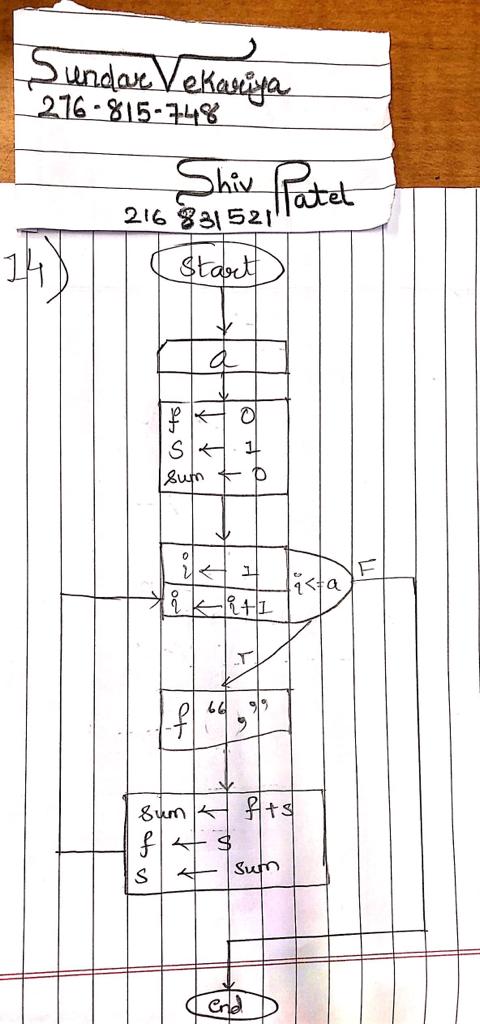 Sundar Vekariya
276-815-748
Shiv Patel
216 831521
14)
Start
a
f ← 0
S ← 1
sum ← 0
i ← 1
i ← i+1
i<=a
F
T
f “,”
sum ← f+s
f ← s
s ← sum
end